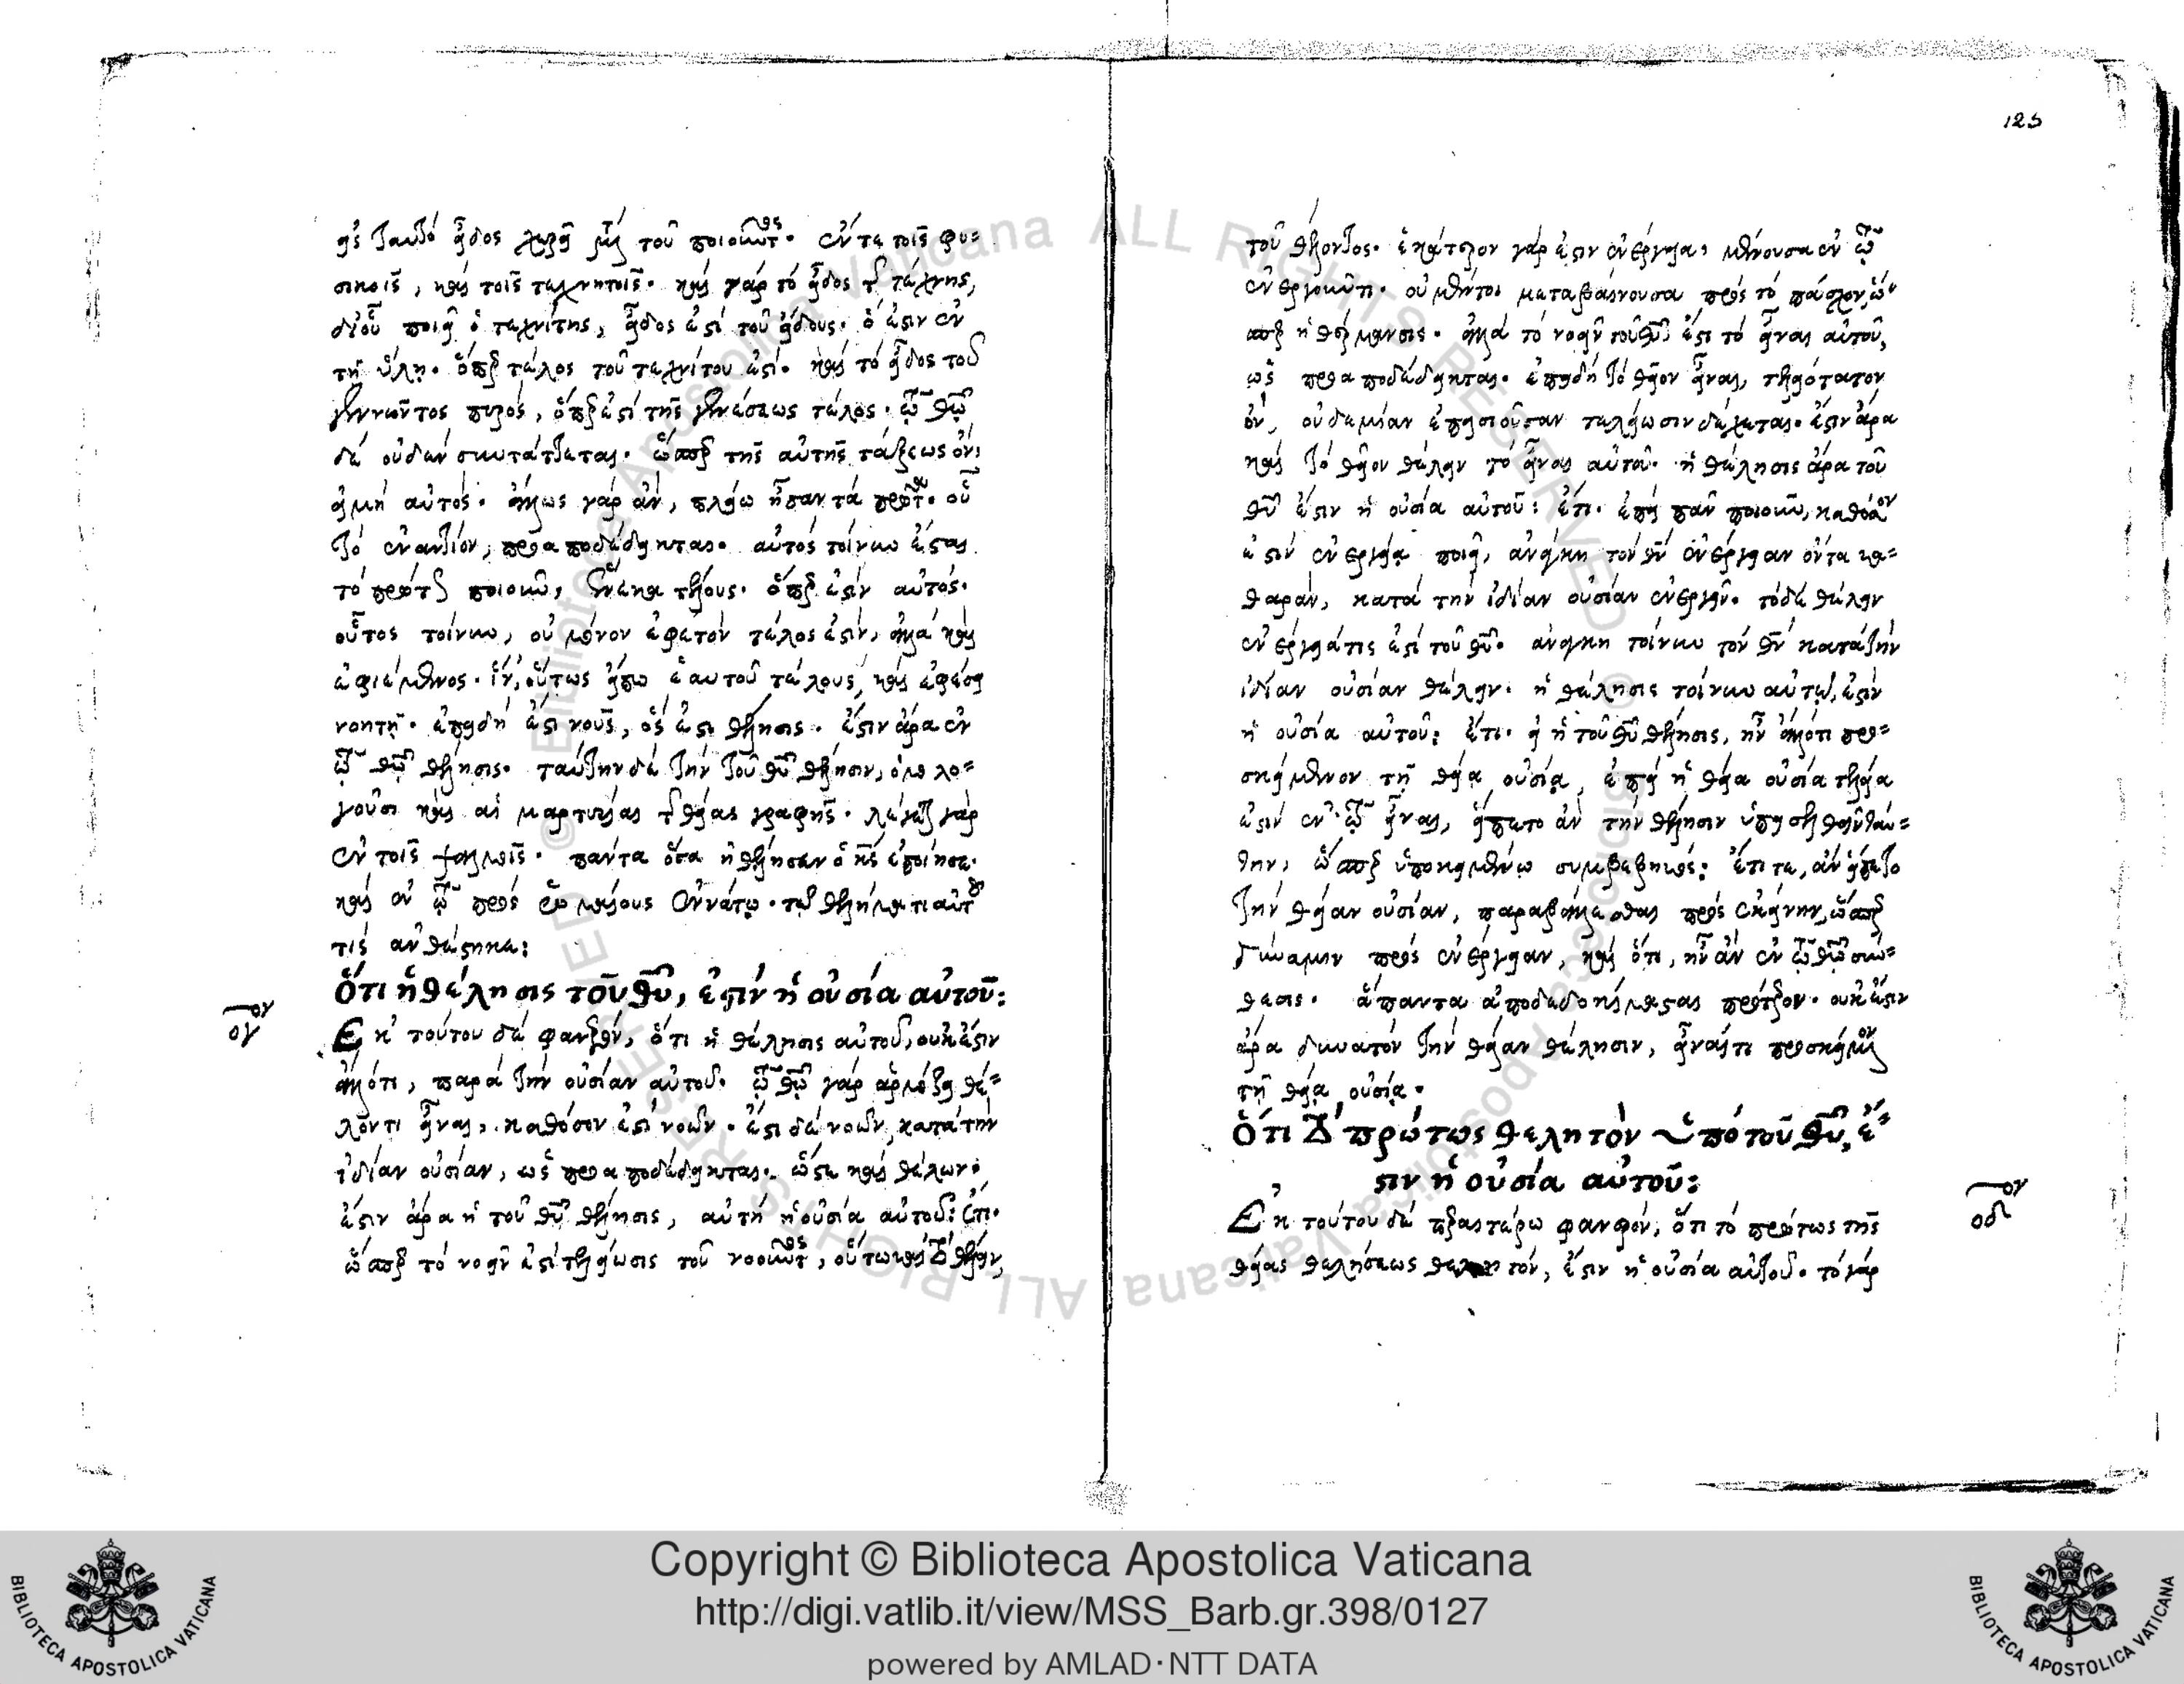 εἰς ταυτὸ εἶδος χωρεῖ τοῦ ποιοῦντος. ἔν τε τοῖς φυ-
σικοῖς, καὶ τοῖς τεχνητοῖς. καὶ γὰρ τὸ εἶδος τῆς τέχνης,
δι' οὗ ποιεῖ ὁ τεχνίτης, εἶδός ἐστι τοῦ εἴδους. ὅ ἐστιν ἐν
τῇ ὕλῃ. ὅπερ τέλος τοῦ τεχνίτου ἐστί. καὶ τὸ εἶδος τοῦ
γεννῶντος πυρός, ὅπερ ἐστὶ τῆς γενέσεως τέλος. τῷ θεῷ
δὲ οὐδὲν συντάττεται. ὥσπερ τῆς αὐτῆς τάξεως ὄν,
εἰ μὴ αὐτός. ἄλλως γὰρ ἂν, πλείω ἦσαν τὰ πρῶτα. οὗ
τὸ ἐναντίον, προαποδέδεικται. αὐτὸς τοίνυν ἐστὶ
τὸ πρώτως ποιοῦν, ἕνεκα τέλους. ὅπερ ἐστὶν αὐτός.
οὗτος τοίνυν, οὐ μόνον ἐφετὸν τέλος ἐστίν, ἀλλὰ καὶ
ἐφιέμενος. ἵν', οὕτως εἴπω ἑαυτοῦ τέλους, καὶ ἐφέσει
νοητῇ. ἐπειδή ἐστι νοῦς, ὅς ἐστι θέλησις. ἔστιν ἄρα ἐν
τῷ θεῷ θέλησις. ταύτην δὲ τὴν τοῦ θεοῦ θέλησιν, ὁμολο-
γοῦσι καὶ αἱ μαρτυρίαι τῆς θείας γραφῆς. λέγεται γὰρ
ἐν τοῖς ψαλμοῖς. πάντα ὅσα ἠθέλησεν ὁ κύριος ἐποίησε.
καὶ ἐν τῷ πρὸς ῥωμαίους ἐννάτῳ. τῷ θελήματι αὐτοῦ
τίς ἀνθέστηκε:
Ὅτι ἡ θέλησις τοῦ θυ, ἐστὶν ἡ οὐσία αὐτοῦ:
ογον
Ἐκ τούτου δὲ φανερόν, ὅτι ἡ θέλησις αὐτοῦ, οὐκ ἔστιν
ἄλλό τι, παρὰ τὴν οὐσίαν αὐτοῦ. τῷ θεῷ γὰρ ἁρμόζει θέ-
λοντι εἶναι, καθόσον ἐστὶ νοῶν. ἔστι δὲ νοῶν, κατὰ τὴν
ἰδίαν οὐσίαν, ὡς προαποδέδεικται. ὥστε καὶ θέλων.
ἔστιν ἄρα ἡ τοῦ θυ θέλησις, αὐτὴ ἡ οὐσία αὐτοῦ: ἔτι.
ὥσπερ τὸ νοεῖν ἐστὶ τελείωσις τοῦ νοοῦντος, οὕτω καὶ τὸ θέλειν,
125
τοῦ θέλοντος. ἑκάτερον γάρ ἐστιν ἐνέργεια, μένουσα ἐν τῷ
ἐνεργοῦντι. οὐ μέντοι μεταβαίνουσα πρὸς τὸ πάσχον, ὥσ-
περ ἡ θέρμανσις. ἀλλὰ τὸ νοεῖν τοῦ θυ ἐστι τὸ εἶναι αὐτοῦ,
ὡς προαποδέδεικται. ἐπειδὴ τὸ θεῖον εἶναι, τελειότατον
ὄν, οὐδεμίαν ἐπεισιοῦσαν τελείωσιν δέχεται. ἔστιν ἄρα
καὶ τὸ θεῖον θέλειν τὸ εἶναι αὐτοῦ. ἡ θέλησις ἄρα τοῦ
θυ ἐστὶν ἡ οὐσία αὐτοῦ: ἔτι. ἐπεὶ πᾶν ποιοῦν, καθόσον
ἐστὶν ἐνεργείᾳ ποιεῖ, ἀνάγκη τὸν θν ἐνέργειαν ὄντα κα-
θαράν, κατὰ τὴν ἰδίαν οὐσίαν ἐνεργεῖν. τὸ δὲ θέλειν
ἐνέργειά τις ἐστὶ τοῦ θυ. ἀνάγκη τοίνυν τὸν θν κατὰ τὴν
ἰδίαν οὐσίαν θέλειν. ἡ θέλησις τοίνυν αὐτοῦ, ἐστὶν
ἡ οὐσία αὐτοῦ: ἔτι. εἰ ἡ τοῦ θυ θέλησις, ἦν ἄλλό τι προσ-
κείμενον τῇ θείᾳ οὐσίᾳ, ἐπεὶ ἡ θεία οὐσία τελεία
ἐστὶν ἐν τῷ εἶναι, εἵπετο ἂν τὴν θέλησιν ὑπεισελθεῖν ταύ-
την, ὥσπερ ὑποκειμένῳ συμβεβηκός: ἔτι τε, ἂν εἵπετο
τὴν θείαν οὐσίαν, παραβάλλεσθαι πρὸς ἐκείνην, ὥσπερ
δύναμιν πρὸς ἐνέργειαν, καὶ ὅτι, ἦν ἂν ἐν τῷ θεῷ σύν-
θεσις. ἅπαντα ἀποδεδοκίμασται πρότερον. οὐκ ἔστιν
ἄρα δυνατὸν τὴν θείαν θέλησιν, εἶναί τι προσκείμενον
τῇ θείᾳ οὐσίᾳ.
Ὅτι τὸ πρώτως θελητὸν ὑπὸ τοῦ θυ, ἐ-
στιν ἡ οὐσία αὐτοῦ:
οδον
Ἐκ τούτου δὲ περαιτέρω φανερόν, ὅτι τὸ πρώτως τῆς
θείας θελήσεως θελητόν, ἐστὶν ἡ οὐσία αὐτοῦ. τὸ γὰρ
Copyright © Biblioteca Apostolica Vaticana
http://digi.vatlib.it/view/MSS_Barb.gr.398/0127
powered by AMLAD·NTT DATA
BIBLIOTECA APOSTOLICA VATICANA
BIBLIOTECA APOSTOLICA VATICANA